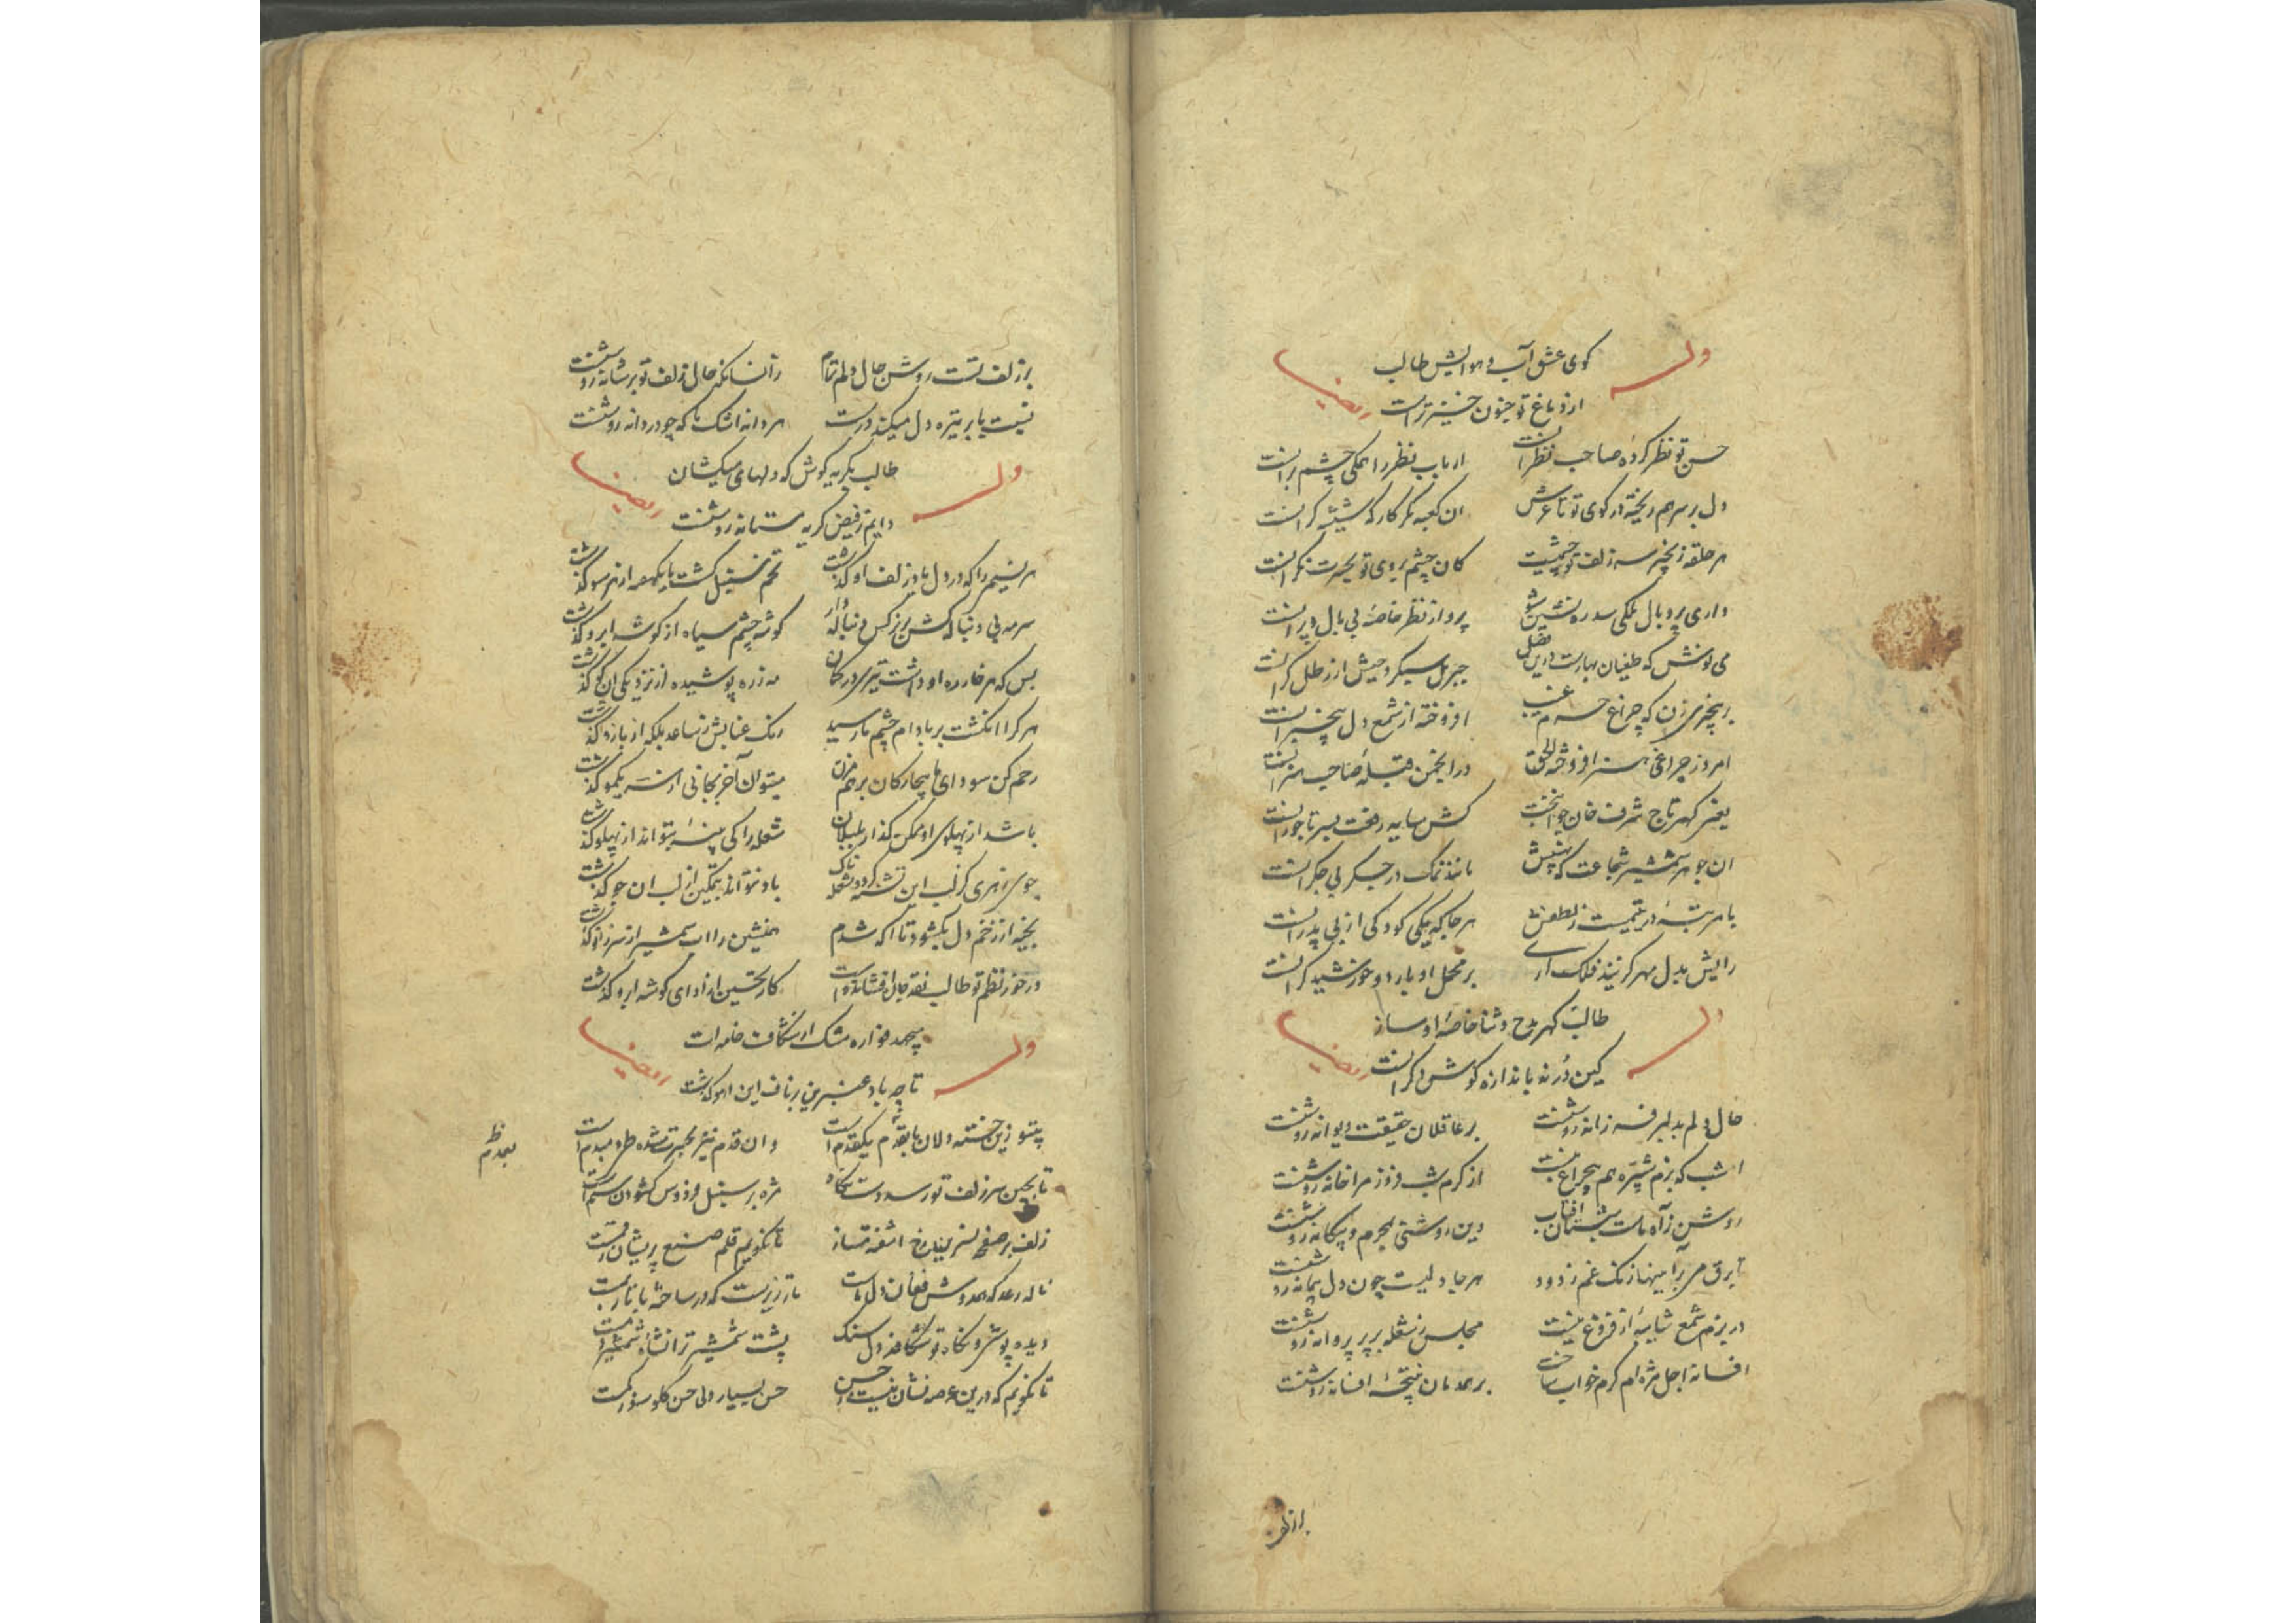 کوی عشق آب و هوایش طالب
وله
از دماغ تو جنون خیزتر است
ایضا
حسن تو نظر کرده صاحب نظرانست ارباب نظر را همگی چشم برانست
دل بر سر هم ریخته در کوی تو تا عرش ان کعبه مگر کارکه شیشه گرانست
هر حلقه زنجیر سر زلف تو چشمیست کان چشم بروی تو بحیرت نگرانست
داری پر و بال ملکی سدره نشین شو پرواز نظر خاصه بی بال و پرانست
می نوش که طغیان بهارست درین فصل
افروخته از شمع دل بیخبرانست
امروز چراغ هنر افروخته در انجمن قبله صاحب هنرانست
یعنی گهر تاج شرف خان جوانبخت کش سایه رفعت بسر تاجورانست
ان جوهر شمشیر شجاعت که نهیبش مانند نمک در جگر بی جگرانست
با مرتبه در یتیمست ز لطفش هر جا که یکی کودکی از بی پدرانست
رایش بدل مهر گزینند فلک ارای بر محمل او بار دو خورشید گرانست
طالب گهر مدح و ثنا خاصه او ساز
وله
کین در نه باندازه گوش دگرانست
ایضا
حال دلم بدلبر فرزانه روشنست بر عاقلان حقیقت دیوانه روشنست
امشب که بزم تیره هم بیچراغ نیست از کرم شب فروز مرا خانه روشنست
روشن ز آه ماست شبستان افتاب وین روشنی بمحرم و بیگانه روشنست
تا برق می بر آینها زنگ غم زدود هر جا دلیست چون دل پیمانه روشنست
در بزم شمع شایبه از فروغ نیست مجلس ز شعله پر پروانه روشنست
افسانه اجل مژه ام گرم خواب ساخت بر همدمان نتیجه افسانه روشنست
بر زلف
بر زلف تست روشن حال دلم تمام زانسانکه حال زلف تو بر شانه روشنست
نسبت بابر تیره دل میکند درست هر دانه اشک ما که چو دردانه روشنست
طالب بگریه کوش که دلهای میکشان
وله
دایم ز فیض گریه مستانه روشنست
ایضا
هر نسیم را که در دل یاد زلف او گذشت تخم سنبل گشت
سرمه بی دنباله کش بر نرگس دنباله دار گوشه چشم سیاه از گوشه ابرو گذشت
بس که هر خار ره او داشت تیری در کمان مه زره پوشیده از نزدیکی ان کو گذشت
هر کرا انگشت بر بادام چشم ما رسید رنک عنابش ز ساعد بلکه از بازو گذشت
رحم کن سودای ما بیچارگان بر هم مزن میتوان آخر بجانی از سر یکمو گذشت
باشد از پهلوی او ممکن گذار بلبلان شعله را کی پنبه بتواند از پهلو گذشت
باد نتواند بتمکین از لب ان جو گذشت
بخیه از زخم دل بگشود تا اگه شدم همنشین را اب شمشیر از سر زانو گذشت
در خور نظم تو طالب نقد جان افشاندن است کار تحسین از ادای گوشه ابرو گذشت
میجهد فواره مشک از شکاف خامه ات
وله
تا چه باد عنبرین بر ناف این اهو گذشت
ایضا
بیتو زین خسته دلان تا بعدم یکقدم است وان قدم نیز بحیرت شده
بعدم ظ
تا بچین سر زلف تو رسد دست نگاه مژه بر سنبل فردوس گشودن ستم است
زلف بر صفحه نسرین رخ اشفته مساز تا نگویم قلم صنع پریشان رقمست
ناله رعد که همدوش فغان دل ماست تار زیریست که در ساخته با تار بمست
دیده پوشی و نگاه تو شکافد دل سنک پشت شمشیر ترا نشاه شمشیر دمست
تا نگویم که درین عرصه نشان نیست ز حسن حسن بسیار ولی حسن گلوسوز کمست